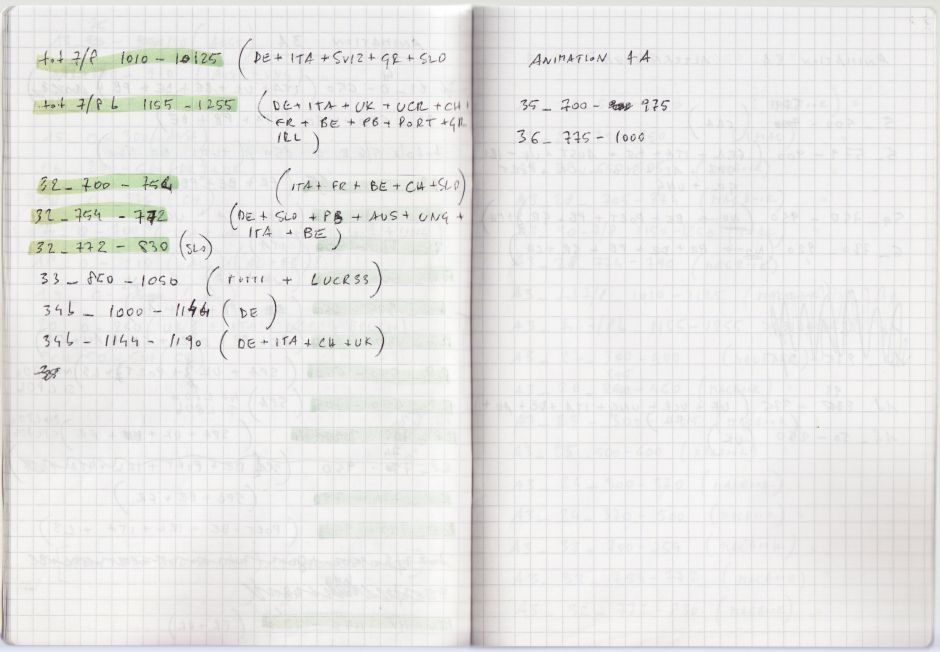 tot 7/8 1010 - 10125 (DE + ITA + SVIZ + GR + SLO
tot 7/8 b 1155 - 1255 (DE + ITA + UK + UCR + CH +
FR + BE + PB + PORT + GR
IRL)
32_ 700 - 754 (ITA + FR + BE + CH + SLO)
32_ 754 - 772 (DE + SLO + PB + AUS + UNG +
ITA + BE)
32_ 772 - 830 (SLO)
33_ 850 - 1050 (TUTTI + LUCR33)
34b_ 1000 - 1144 (DE)
34b - 1144 - 1190 (DE + ITA + CH + UK)
ANIMATION 4A
35_ 700 - 975
36_ 775 - 1000